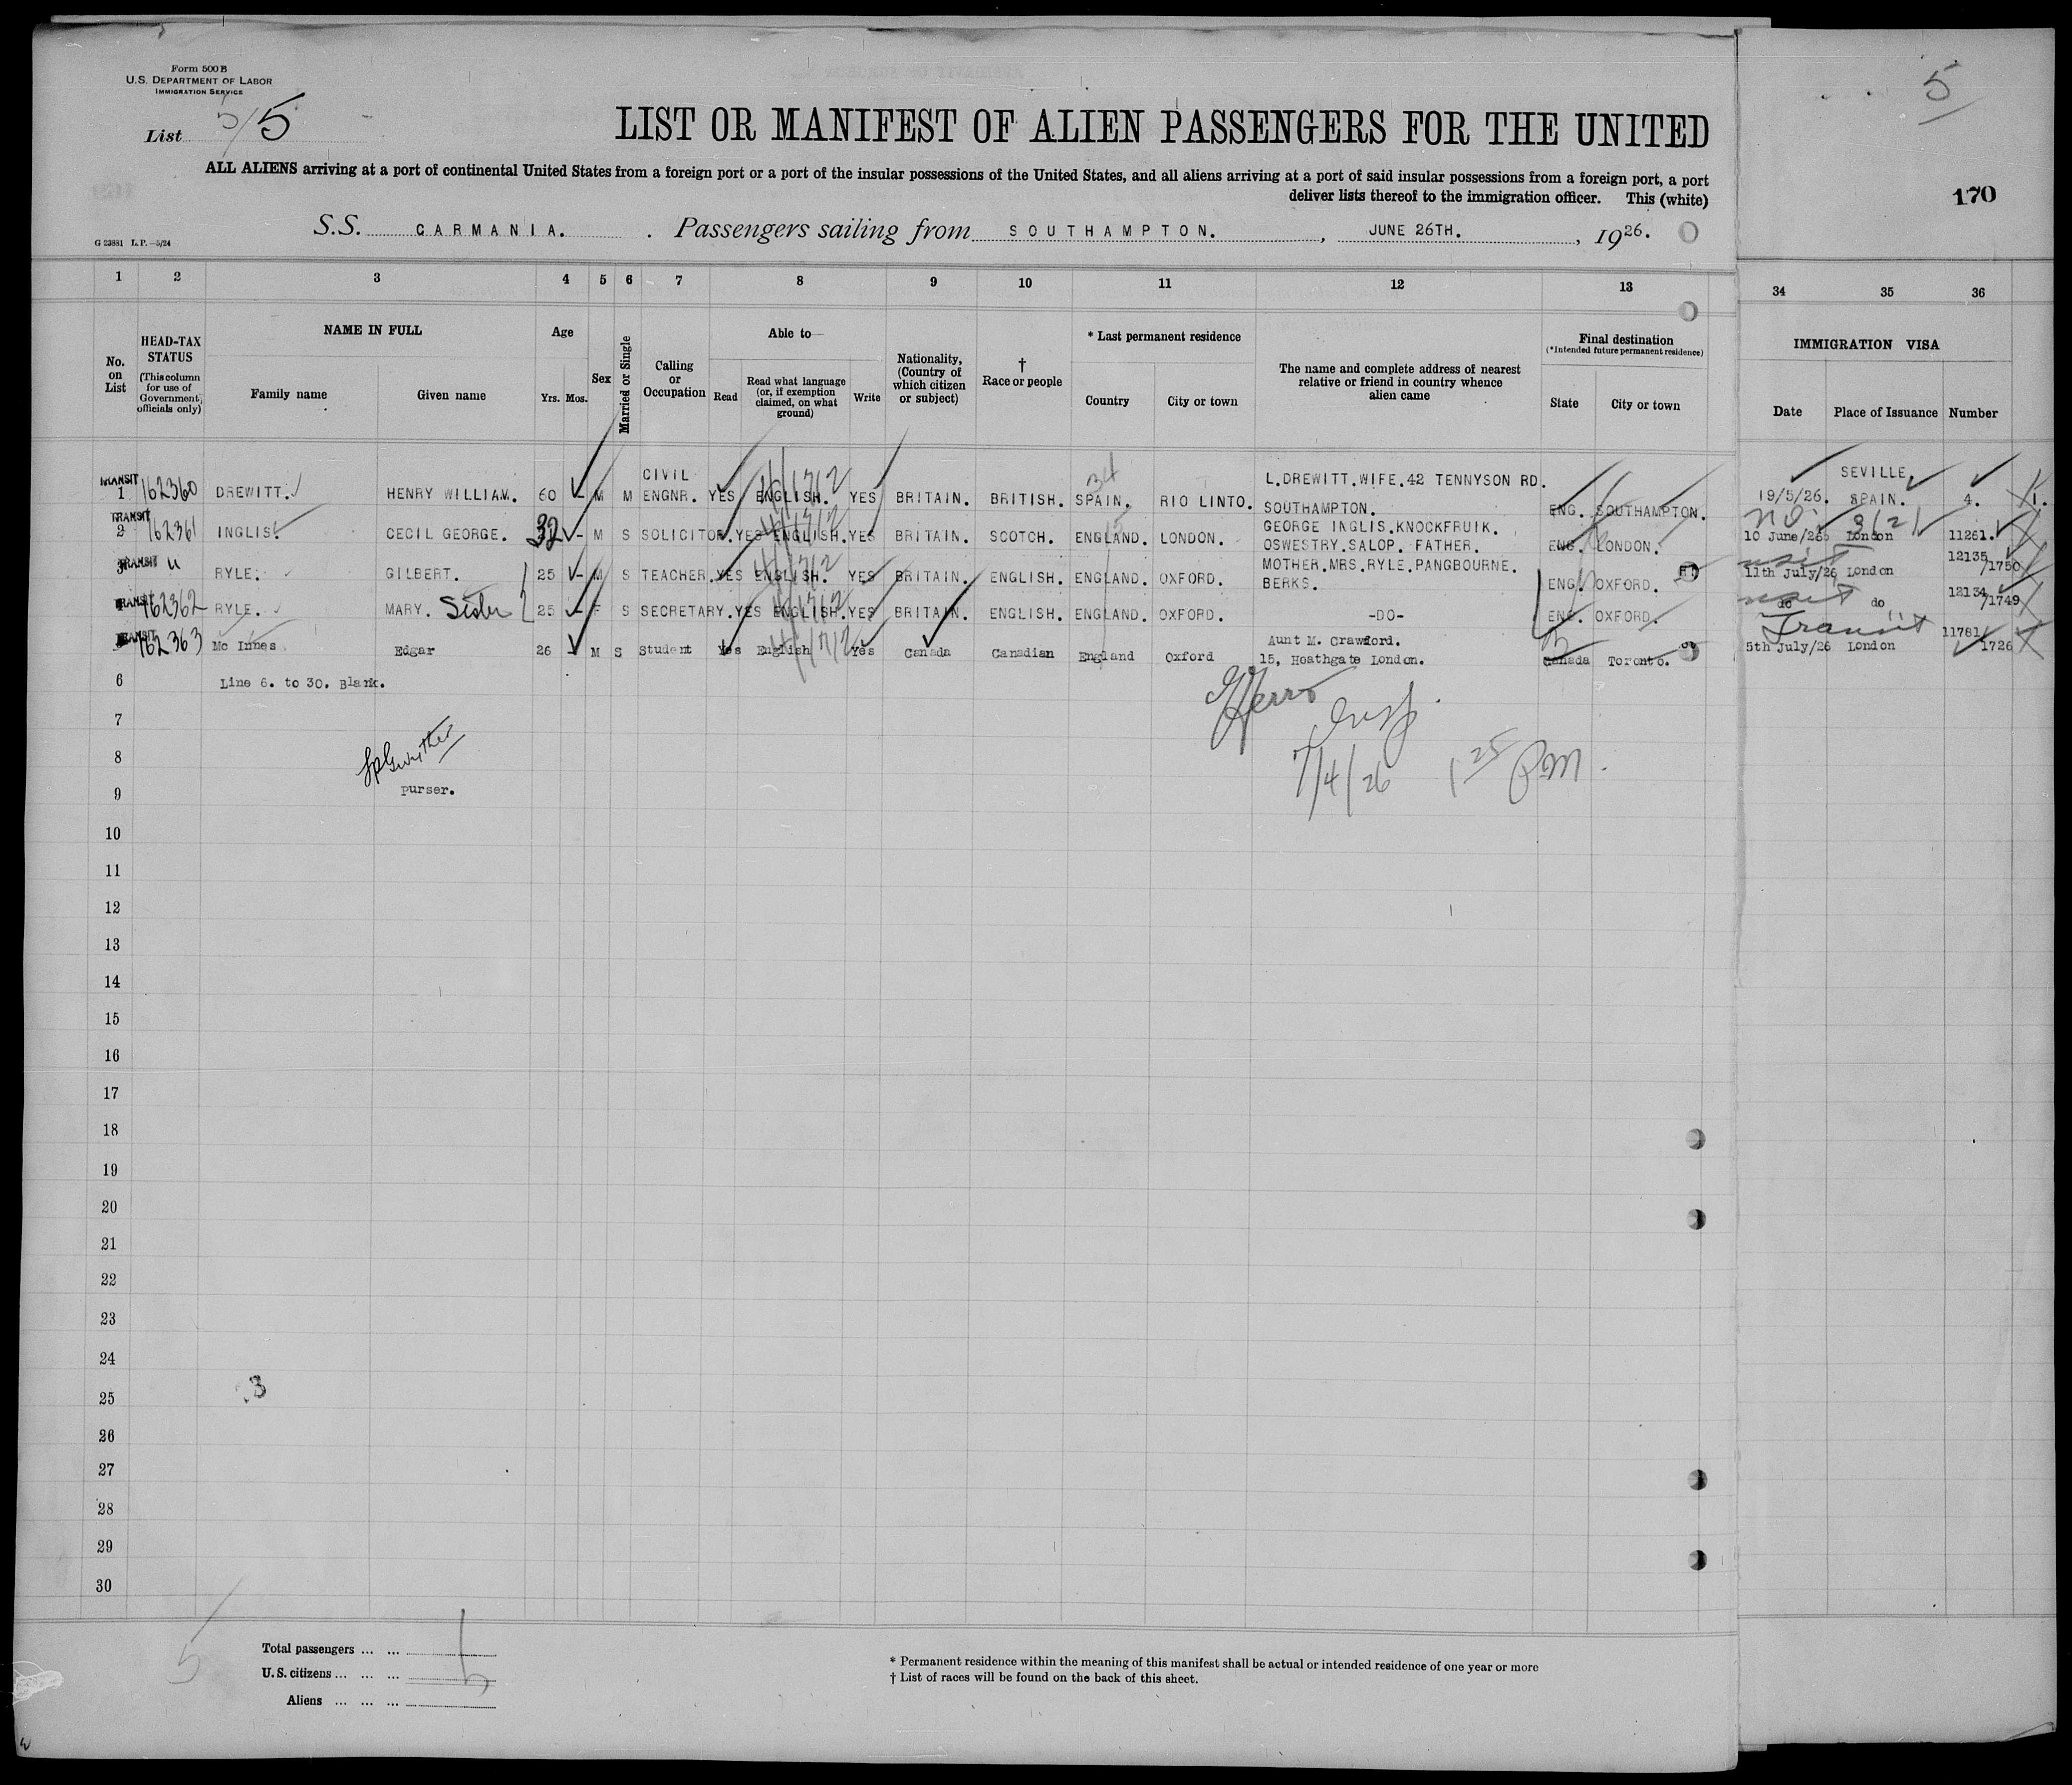 Form 500 B
U.S. DEPARTMENT OF LABOR
IMMIGRATION SERVICE
List 5/5
5
170
LIST OR MANIFEST OF ALIEN PASSENGERS FOR THE UNITED
ALL ALIENS arriving at a port of continental United States from a foreign port or a port of the insular possessions of the United States, and all aliens arriving at a port of said insular possessions from a foreign port, a port
deliver lists thereof to the immigration officer. This (white)
S.S. CARMANIA. Passengers sailing from SOUTHAMPTON., JUNE 26TH., 1926.
G 23881 L.P.-5/24
1 2 3 4 5 6 7 8 9 10 11 12 13 34 35 36
No. on List
HEAD-TAX STATUS (This column for use of Government officials only)
NAME IN FULL
Family name Given name
Age
Yrs. Mos.
Sex
Married or Single
Calling or Occupation
Able to—
Read Read what language (or, if exemption claimed, on what ground) Write
Nationality, (Country of which citizen or subject)
† Race or people
* Last permanent residence
Country City or town
The name and complete address of nearest relative or friend in country whence alien came
Final destination
(*Intended future permanent residence)
State City or town
IMMIGRATION VISA
Date Place of Issuance Number
TRANSIT 1 162360 DREWITT. HENRY WILLIAM. 60 - M M CIVIL ENGNR. YES ENGLISH. YES BRITAIN. BRITISH. SPAIN. RIO LINTO. L.DREWITT.WIFE.42 TENNYSON RD. SOUTHAMPTON. ENG. SOUTHAMPTON. 19/5/26. SEVILLE, SPAIN. 4. 1.
TRANSIT 2 162361 INGLIS. CECIL GEORGE. 32 - M S SOLICITOR. YES ENGLISH. YES BRITAIN. SCOTCH. ENGLAND. LONDON. GEORGE INGLIS.KNOCKFRUIK. OSWESTRY.SALOP. FATHER. ENG. LONDON. no. 3(2) 10 June/26 London 11261.
TRANSIT 3 " RYLE. GILBERT. 25 - M S TEACHER. YES ENGLISH. YES BRITAIN. ENGLISH. ENGLAND. OXFORD. MOTHER.MRS.RYLE.PANGBOURNE. BERKS. ENG. OXFORD. 11th July/26 London 12135/1750
TRANSIT 162362 RYLE. MARY. Sister 25 - F S SECRETARY. YES ENGLISH. YES BRITAIN. ENGLISH. ENGLAND. OXFORD. -DO- ENG. OXFORD. do do 12134/1749
TRANSIT 162363 Mc Innes Edgar 26 M S Student Yes English Yes Canada Canadian England Oxford Aunt M. Crawford. 15, Hoathgate London. Canada Toronto. Transit 5th July/26 London 11781/1726
6 Line 6. to 30. Blank.
7
8
9 purser.
7/4/26 1 25 PM.
10
11
12
13
14
15
16
17
18
19
20
21
22
23
24
25
26
27
28
29
30
3
5
Total passengers ... ...
U.S. citizens ... ... ...
Aliens ... ... ...
5
* Permanent residence within the meaning of this manifest shall be actual or intended residence of one year or more
† List of races will be found on the back of this sheet.